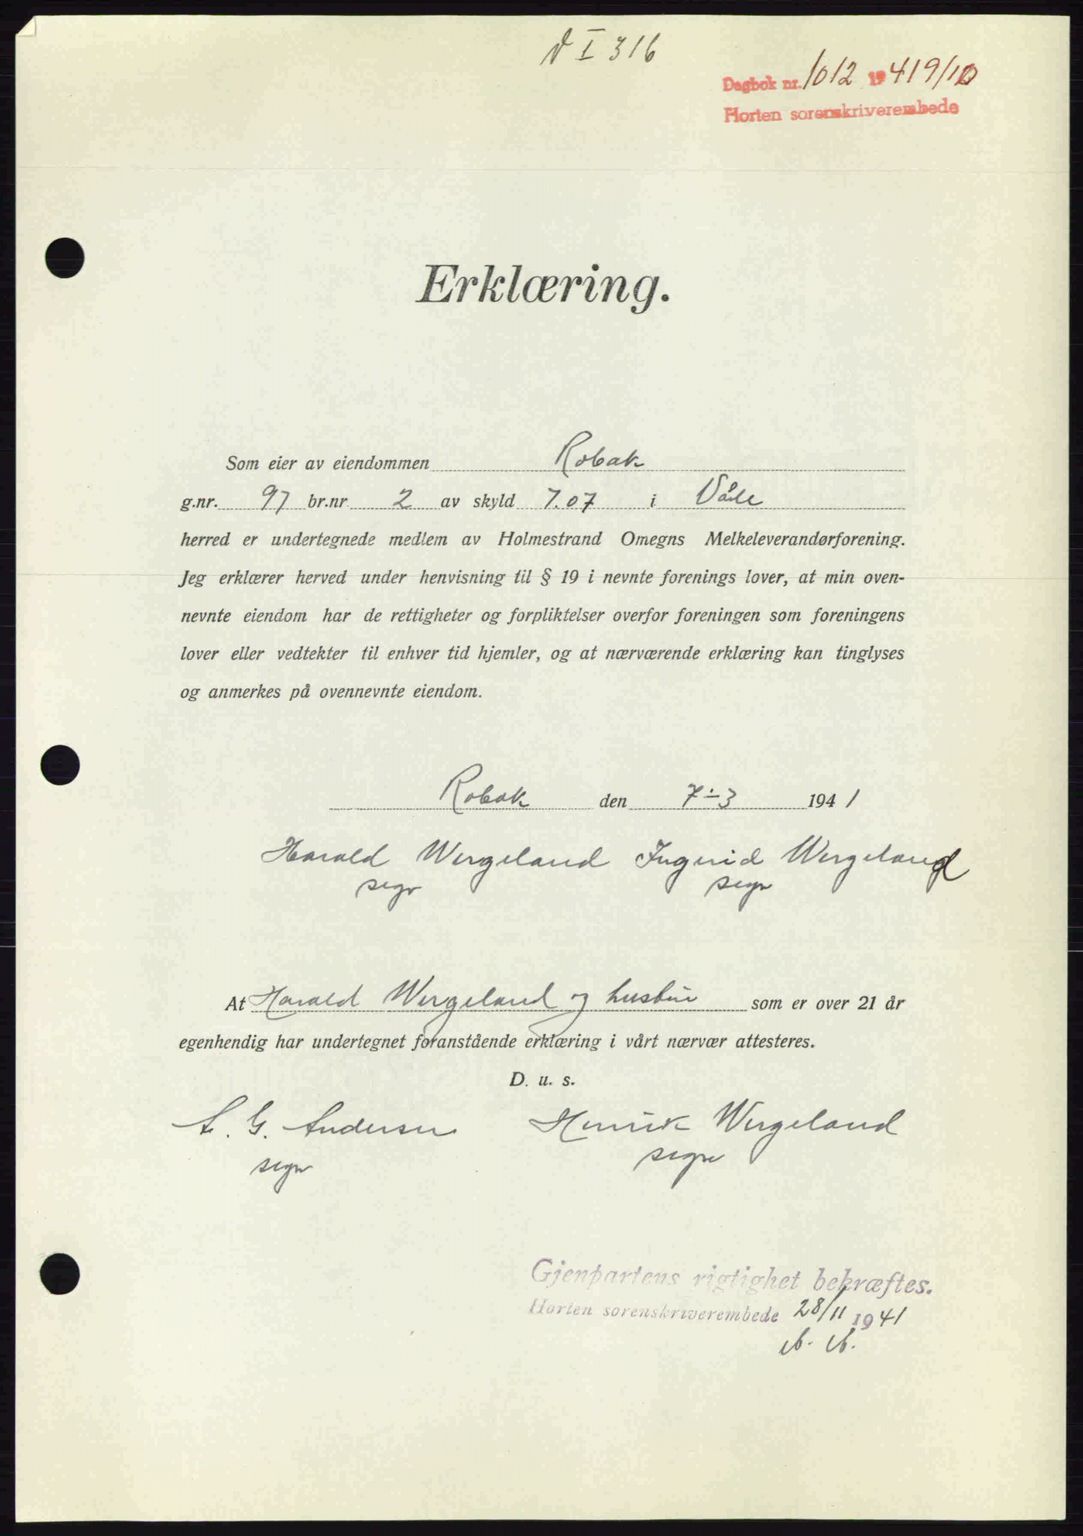 V I 316
Dagbok nr. 1012 1941 9/10
Horten sorenskriverembede
Erklæring.
Som eier av eiendommen Robak
g.nr. 97 br.nr 2 av skyld 7.07 i Våle
herred er undertegnede medlem av Holmestrand Omegns Melkeleverandørforening.
Jeg erklærer herved under henvisning til § 19 i nevnte forenings lover, at min oven-
nevnte eiendom har de rettigheter og forpliktelser overfor foreningen som foreningens
lover eller vedtekter til enhver tid hjemler, og at nærværende erklæring kan tinglyses
og anmerkes på ovennevnte eiendom.
Robak den 7-3 1941
Harald Wergeland Ingrid Wergeland
sign sign
At Harald Wergeland og hustru som er over 21 år
egenhendig har undertegnet foranstående erklæring i vårt nærvær attesteres.
D. u. s.
G. Andersen Henrik Wergeland
sign sign
Gjenpartens rigtighet bekræftes.
Horten sorenskriverembede 28/11 1941